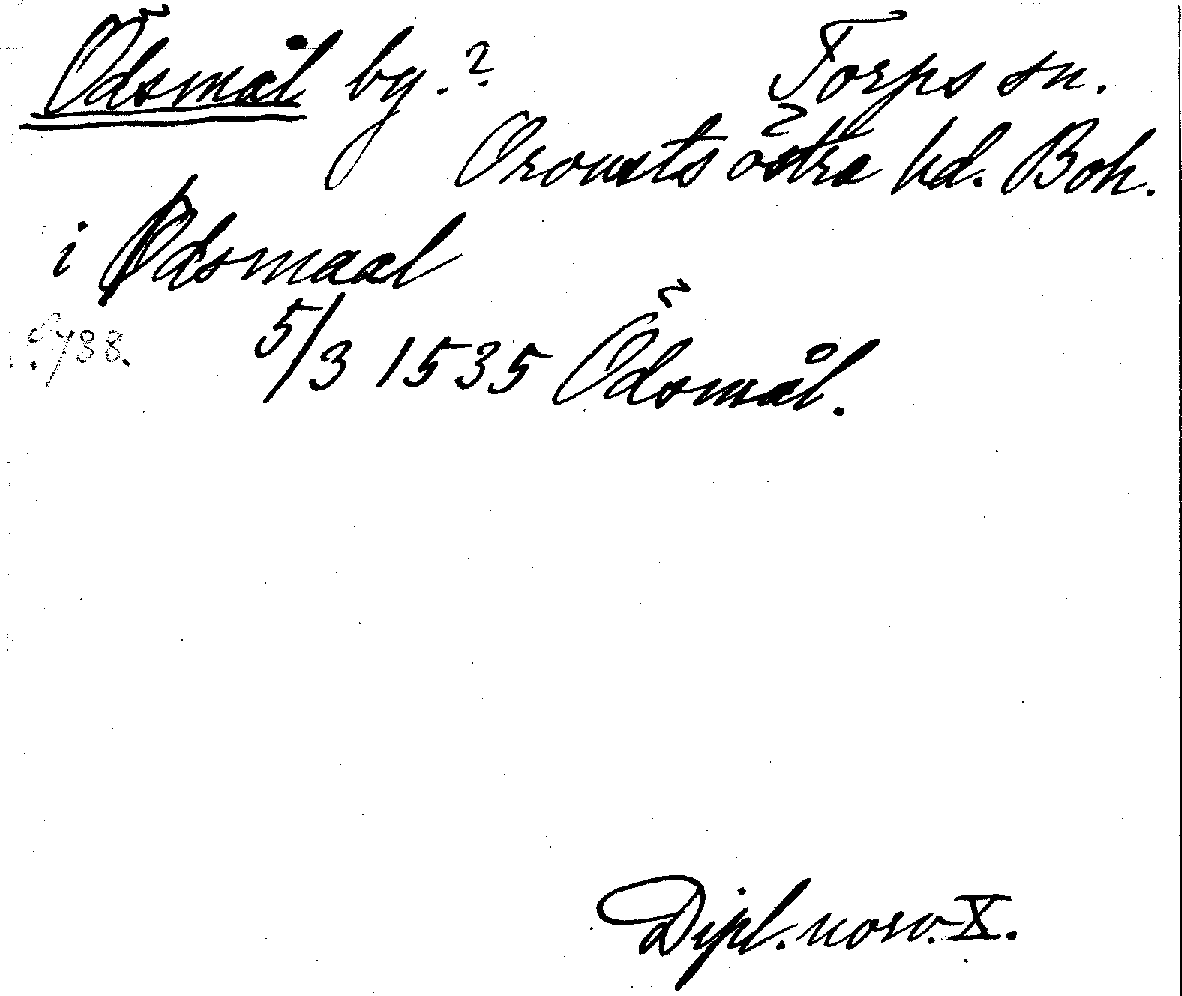 Ödsmål by.? Torps sn.
Orousts östra hd. Boh.
i Ødsmaal
S. 738. 5/3 1535 Ödsmål.
Dipl. norv. X.